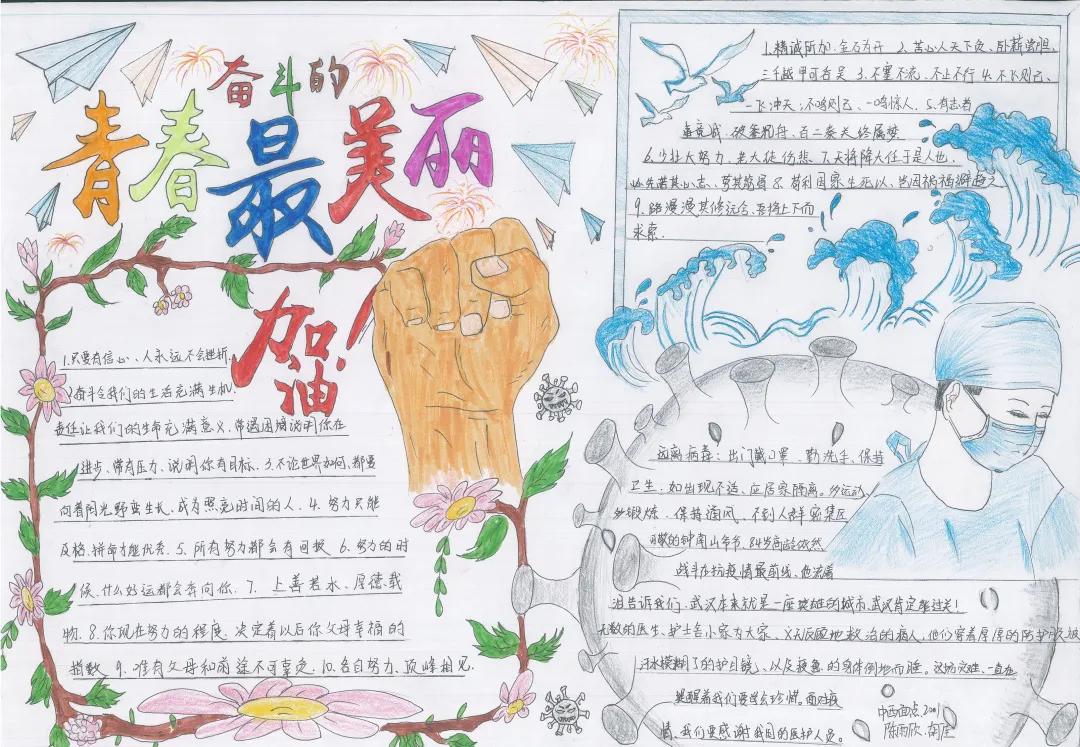 奋斗的
青春最美丽
加油!
1.只要有信心、人永远不会挫折.
2奋斗令我们的生活充满生机.
责任让我们的生命充满意义,常遇困境说明你在
进步、常有压力、说明你有目标.3.不论世界如何,都要
向着阳光野蛮生长,成为照亮时间的人.4.努力只能
及格.拼命才能优秀.5.所有努力都会有回报 6.努力的时
候,什么好运都会奔向你.7.上善若水、厚德载
物.8.你现在努力的程度 决定着以后你父母幸福的
指数 9.唯有父母和前途不可辜负.10.各自努力、顶峰相见.
1.精诚所加.金石为开 2.苦心人天下负、卧薪尝胆、
三千越甲可吞吴 3.不塞不流、不止不行 4.不飞则已、
一飞冲天;不鸣则已、一鸣惊人.5.有志者
事竟成 破釜沉舟、百二秦关终属楚
6.少壮大努力、老大徒伤悲 7.天将降大任于是人也,
必先苦其心志、劳其筋骨 8.苟利国家生死以、岂因祸福避趋之
9.路漫漫其修远兮、吾将上下而
求索.
远离病毒:出门戴口罩、勤洗手、保持
卫生,如出现不适、应居家隔离。多运动、
多锻炼、保持通风、不到人群密集区
可敬的钟南山爷爷、84岁高龄依然
战斗在抗疫情最前线、他流着
泪告诉我们.武汉本来就是一座英雄的城市.武汉肯定能过关!
无数的医生、护士舍小家为大家、义无反顾地救治的病人,他们穿着厚厚的防护服被
汗水模糊了的护目镜、以及疲惫的身体倒地而睡。这场灾难、一直在
提醒着我们要学会珍惜。面对疫
情、我们要感谢我国的医护人员。
中西面点.2001
陈雨欣.